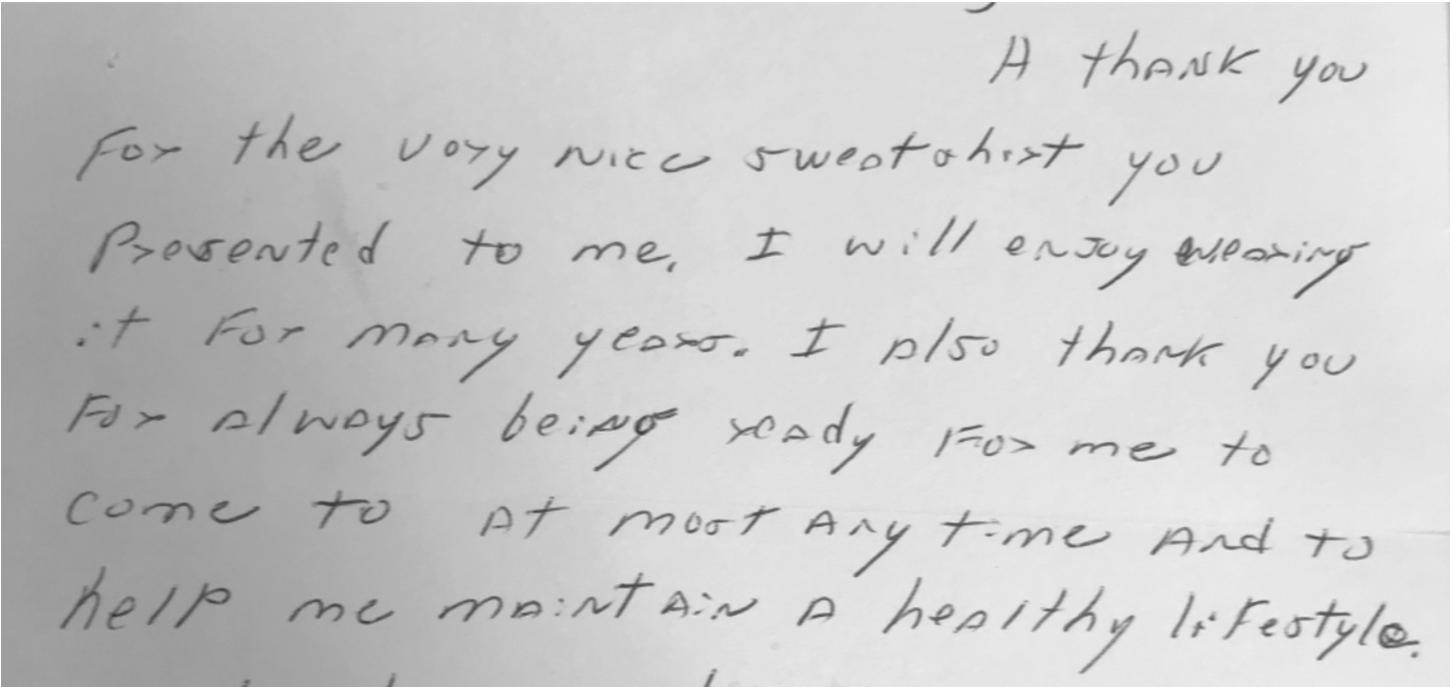 A thank you
For the very nice sweatshirt you
Presented to me, I will enjoy wearing
it For many years. I also thank you
For always being ready For me to
come to at most any time And to
help me maintain a healthy lifestyle.